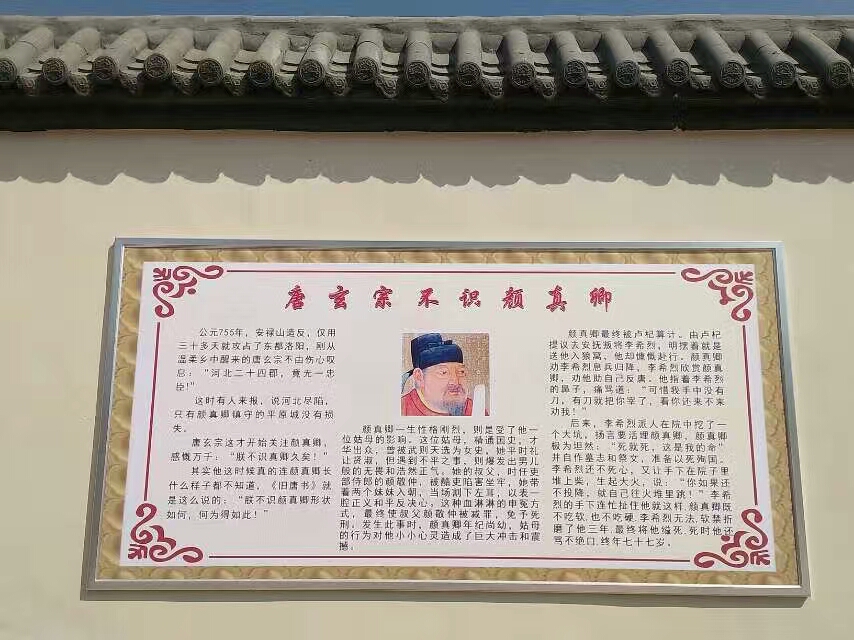 唐玄宗不识颜真卿
公元755年，安禄山造反，仅用
三十多天就攻占了东都洛阳，刚从
温柔乡中醒来的唐玄宗不由伤心叹
息：“河北二十四郡，竟无一忠
臣！”
这时有人来报，说河北尽陷，
只有颜真卿镇守的平原城没有损
失。
唐玄宗这才开始关注颜真卿，
感慨万千：“朕不识真卿久矣！”
其实他这时候真的连颜真卿长
什么样子都不知道，《旧唐书》就
是这么说的：“朕不识颜真卿形状
如何，何为得如此！”
颜真卿一生性格刚烈，则是受了他一
位姑母的影响。这位姑母，精通国史，才
华出众，曾被武则天选为女史，她平时礼
让贤淑，但遇到不平之事，则爆发出男儿
般的无畏和浩然正气。她的叔父，时任吏
部侍郎的颜敬仲，被酷吏陷害坐牢，她带
着两个妹妹入朝，当场割下左耳，以表一
腔正义和平反决心。这种血淋淋的申冤方
式，最终使叔父颜敬仲被减罪，免予死
刑。发生此事时，颜真卿年纪尚幼，姑母
的行为对他小小心灵造成了巨大冲击和震
撼。
颜真卿最终被卢杞算计。由卢杞
提议去安抚叛将李希烈，明摆着就是
送他入狼窝，他却慷慨赴行。颜真卿
劝李希烈息兵归降，李希烈欣赏颜真
卿，劝他助自己反唐。他指着李希烈
的鼻子，痛骂道：“可惜我手中没有
刀，有刀就把你宰了，看你还来不来
劝我！”
后来，李希烈派人在院中挖了一
个大坑，扬言要活埋颜真卿，颜真卿
极为坦然：“死就死，这是我的命”
并自作墓志和祭文，准备以死殉国。
李希烈还不死心，又让手下在院子里
堆上柴，生起大火，说：“你如果还
不投降，就自己往火堆里跳！”李希
烈的手下连忙扯住他就这样，颜真卿既
不吃软，也不吃硬，李希烈无法，软禁折
磨了他三年，最终将他缢死，死时他还
骂不绝口，终年七十七岁。